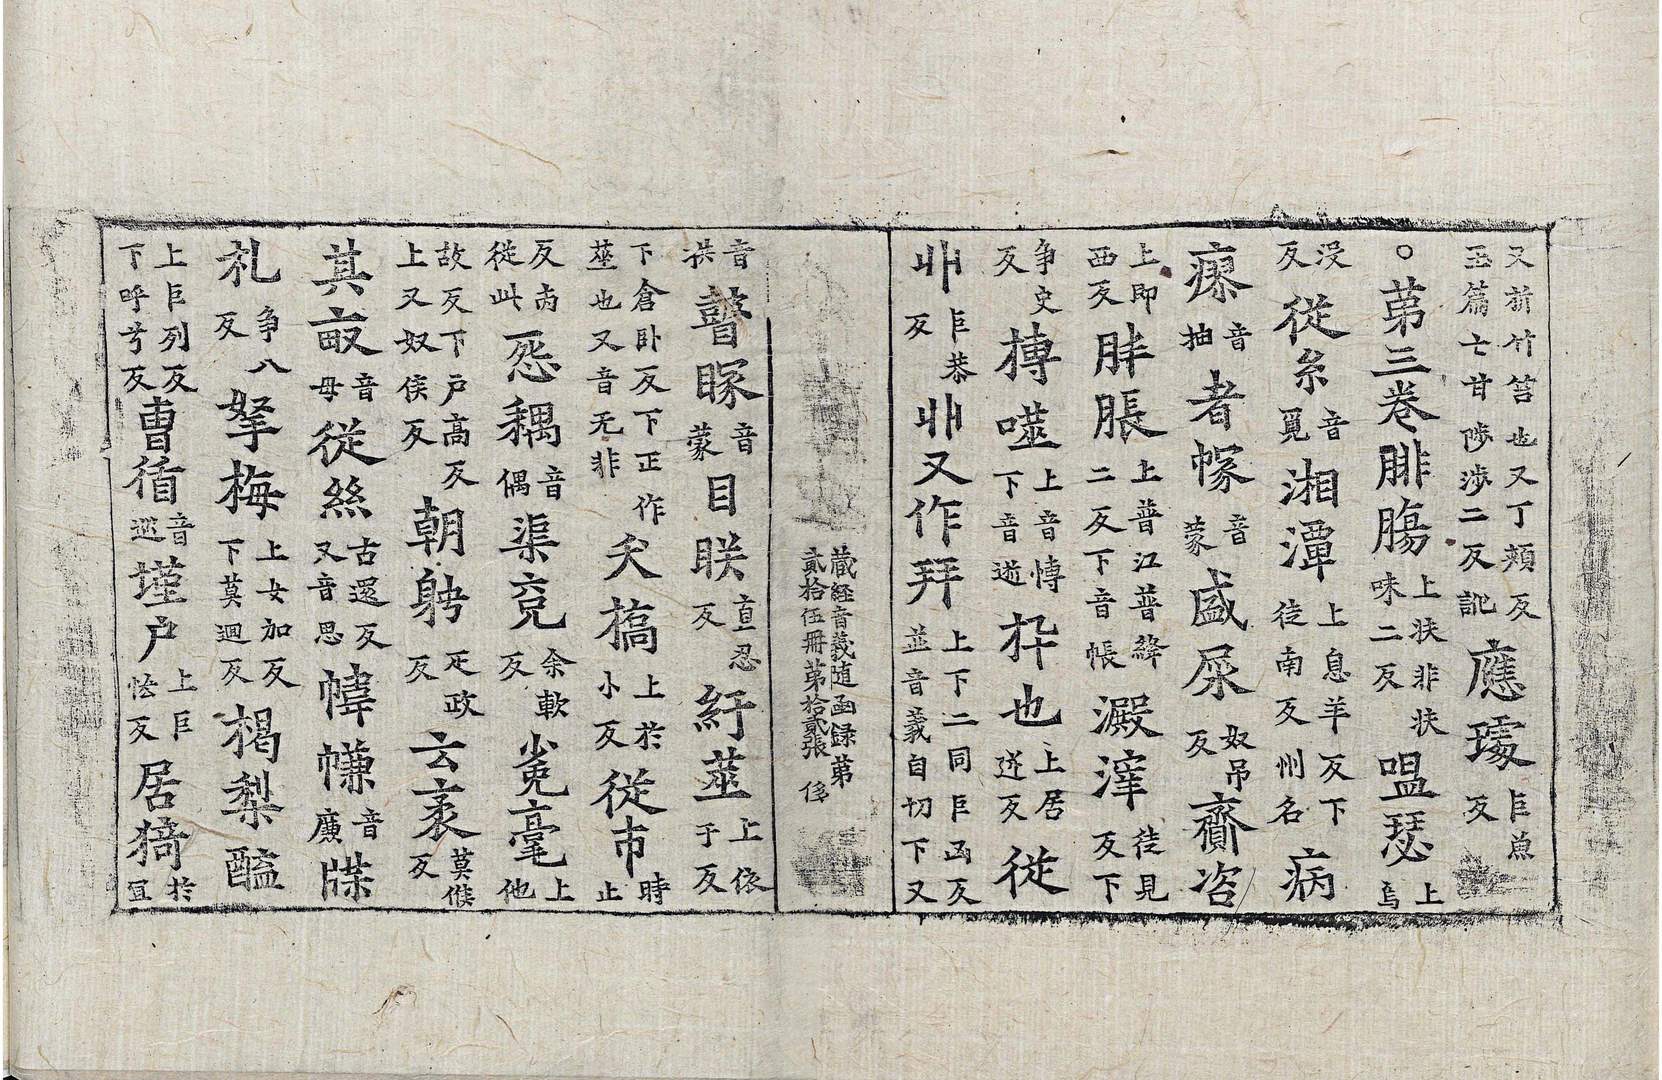 又折竹笞也又丁頰反玉篇亡甘陟涉二反訑應璩巨魚反
○苐三卷腓膓上扶非扶味二反嗢瑟上烏
没反從糸音覓湘潭上息羊反下徒南反州名病
瘶音抽者幏音蒙盛屎奴吊反齎咨
上即西反胖脹上普江普絳二反下音帳澱滓徒見反下
爭史反摶噬上音慱下音逝枠也上居逆反從
丱巨恭反丱又作拜上下二同巨凾反並音義自切下又
藏経音義随函録苐貳拾伍冊苐拾貳張
音拱瞽矇音蒙目眹直忍反紆莁上依于反
下倉卧反下正作莁也又音无非夭撟上於小反從市時止
反內從此惌耦音偶渠竞余軟反毚毫上他
故反下戸高反上又奴侯反朝躬疋政反云袤莫候反
其畞音母從絲古還反又音思幃幭音廣牒
札爭八反拏梅上女加反下莫迴反楬梨醯
上巨列反下呼兮反曺循音巡墐户上巨恡反居猗於宜